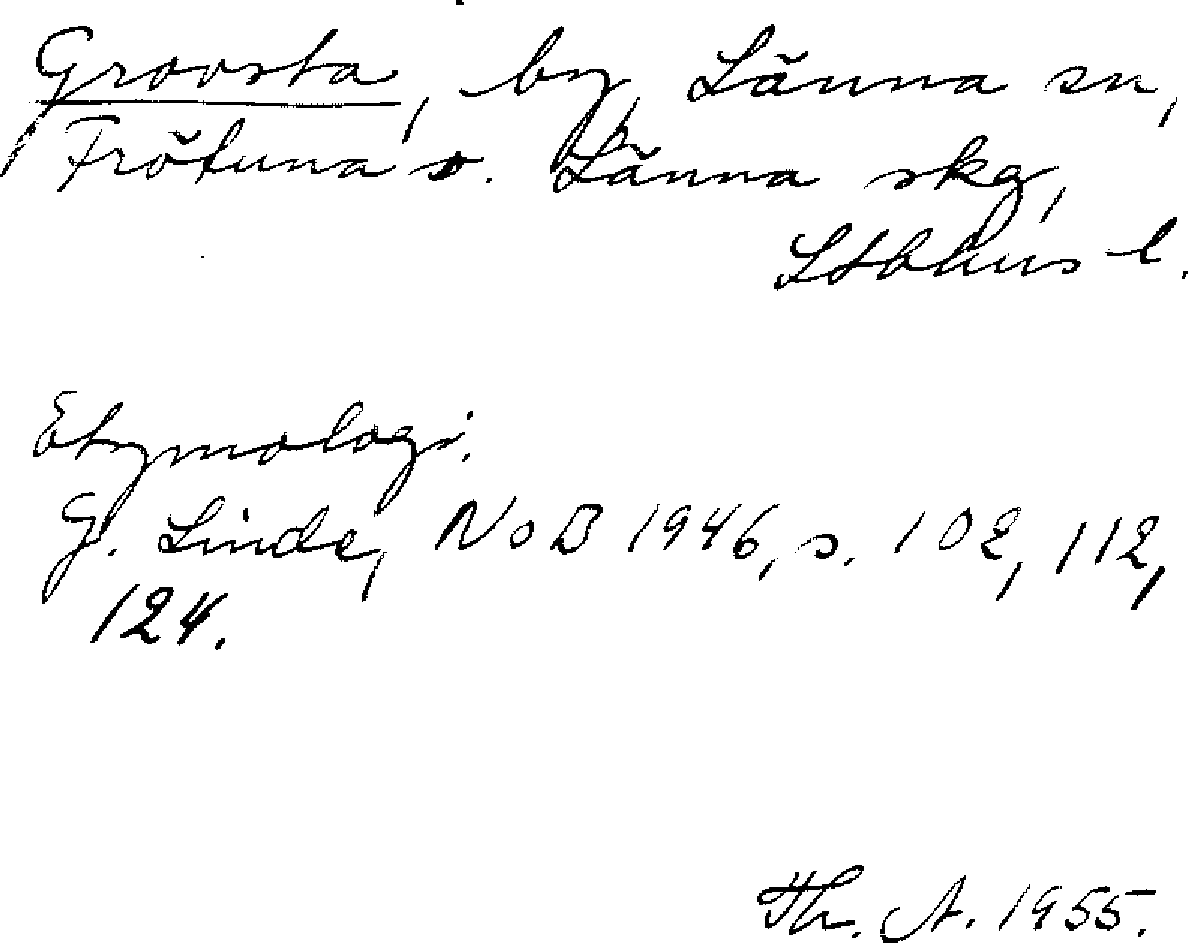 Grovsta, by, Länna sn,
Frötuna o. Länna skg,
Stbhus l.
Etymologi.
G. Linde, NoB 1946, s. 102, 112,
124.
Th. A. 1955.